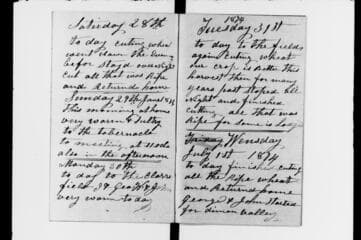 Saturday 28th
to day cuting wheat
went down the Even
befor stayd overnight
cut all that was Ripe
and returned home
Sunday 29th
This morning at home
very warm & Sultry
to the tabernacle
to meeting at 11 o clo
also in the afternoon
Monday 30th
to day to the
field J & Geo W & John
very warm to day
1874
Tuesday 31st
to day to the fields
again cuting wheat
our crop is Better this
harvest then for many
years past stoped all
Night and finished
cutting all that was
Ripe
Wensday
July 1st 1874
to day finished cuting
all the Ripe wheat
and Returned home
George & John Started
for Simon valley